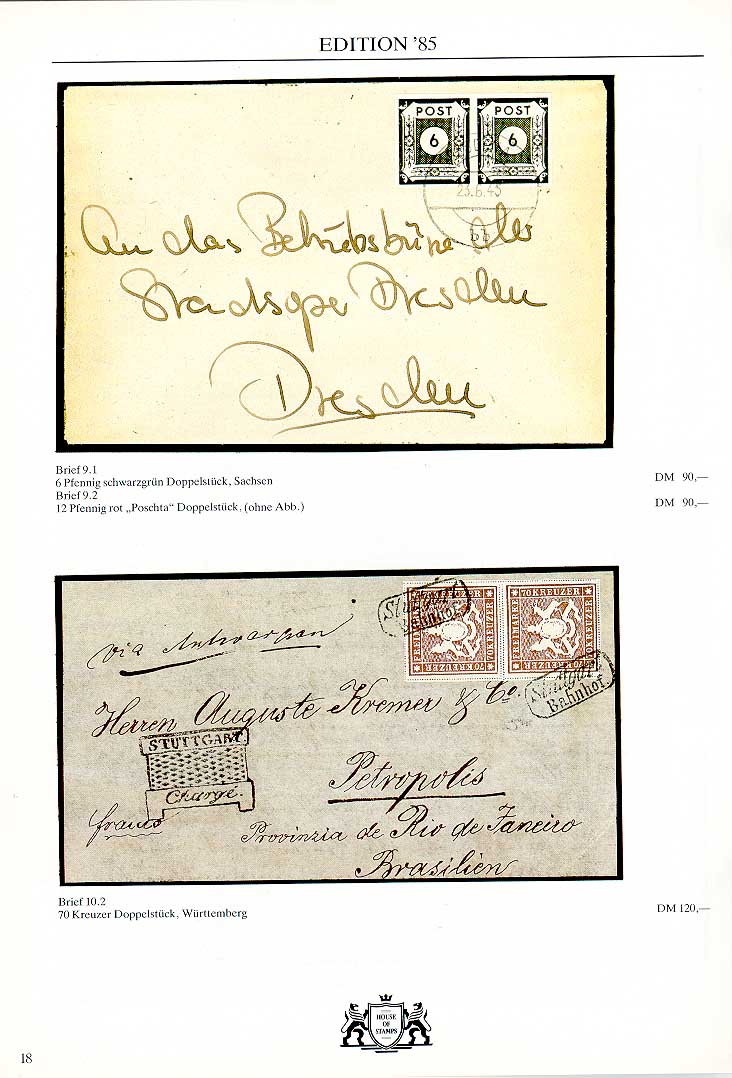 EDITION '85
POST POST
6 6
23.6.45
bb
An das Betriebsbüro der
Staatsoper Dresden
Dresden
Brief 9.1
6 Pfennig schwarzgrün Doppelstück, Sachsen DM 90,—
Brief 9.2
12 Pfennig rot „Poschta“ Doppelstück, (ohne Abb.) DM 90,—
70 KREUZER 70 KREUZER
FREIMARKE FREIMARKE
Stuttgart
Bahnhof.
via Antwerpen
Stuttgart
Bahnhof.
Herren Auguste Kremer & Co.
STUTTGART
Chargé.
Petropolis
franco
Provinzia de Rio de Janeiro
Brasilien
Brief 10.2
70 Kreuzer Doppelstück, Württemberg DM 120,—
HOUSE
OF
STAMPS
18